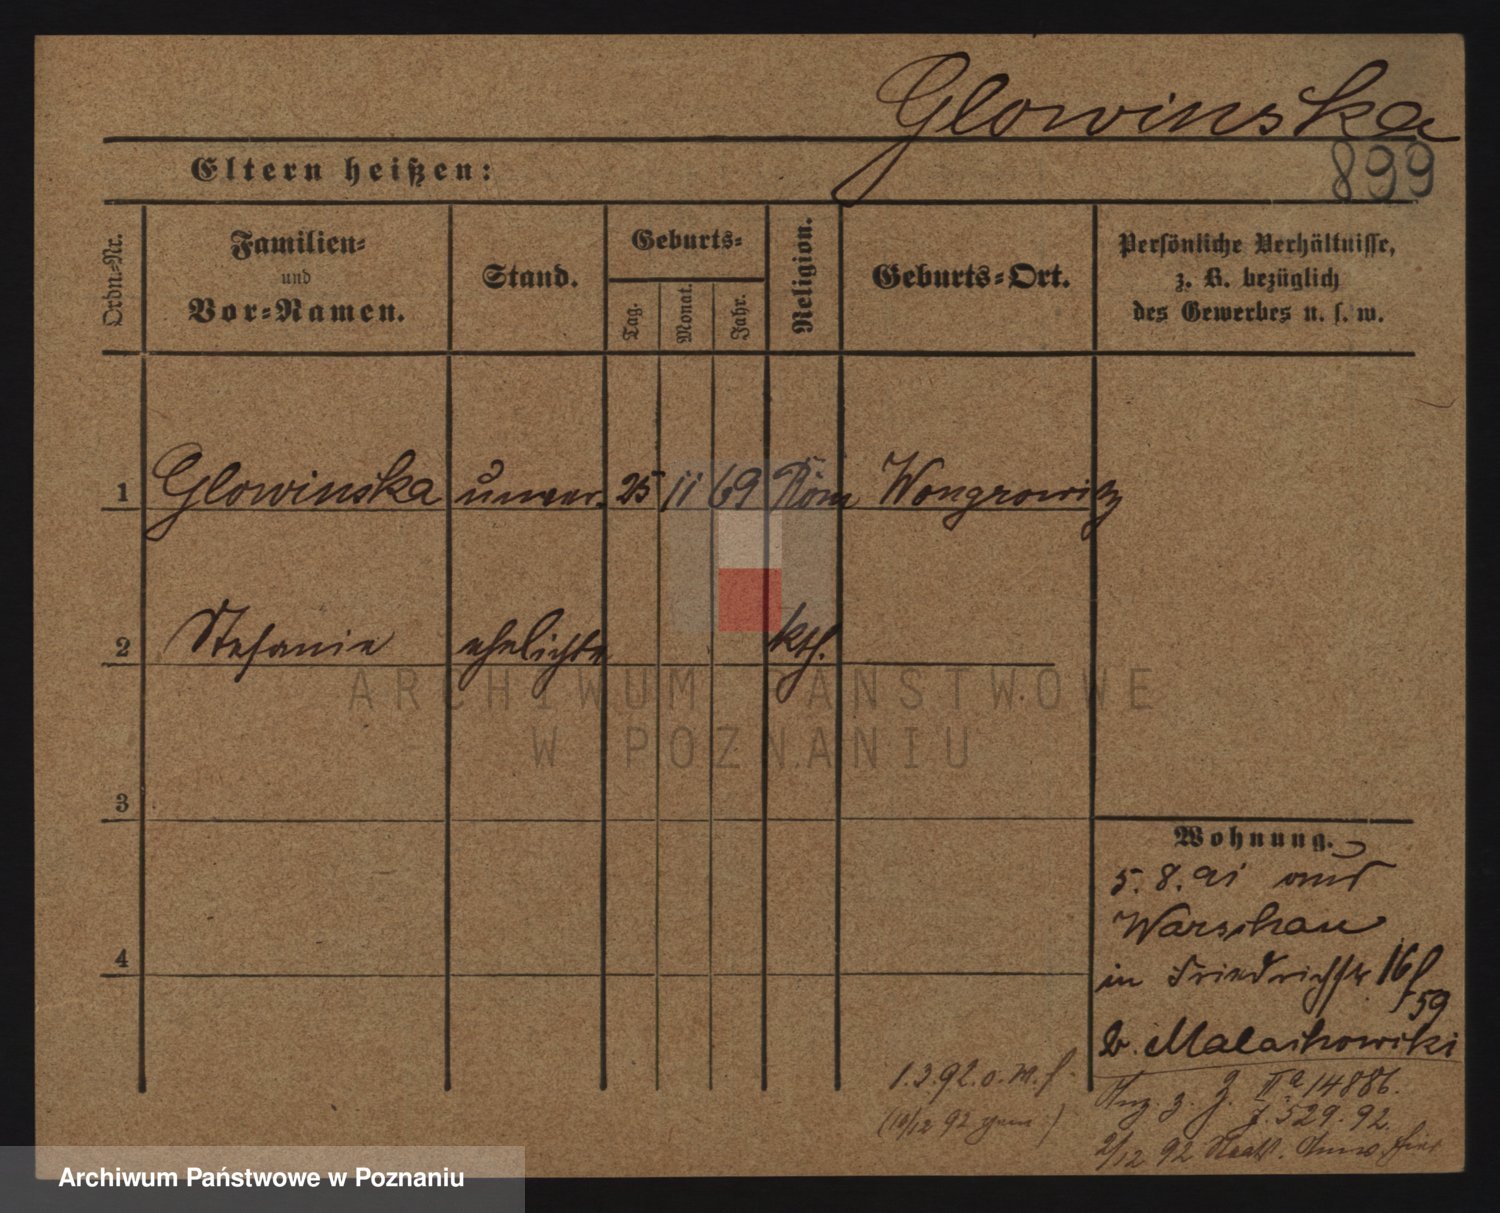 Glowinska
Eltern heißen:
899
Ordn.-Nr.
Familien-
und
Vor-Namen.
Stand.
Geburts-
Tag.
Monat.
Jahr.
Religion.
Geburts-Ort.
Persönliche Verhältnisse,
z. B. bezüglich
des Gewerbes u. s. w.
1 Glowinska unver. 25 11 69 Röm Wongrowitz
2 Stefanie ehelichte kth.
ARCHIWUM PAŃSTWOWE
W POZNANIU
3
Wohnung.
5. 8. 91 aus
Warschau
4
in Friedrichstr 16
59
b. Malachowski
1.3.92. o. M. f.
Anz. z. J. IIa 14886.
J. 529. 92.
(10/12 92
2/12 92 Staats.
Archiwum Państwowe w Poznaniu